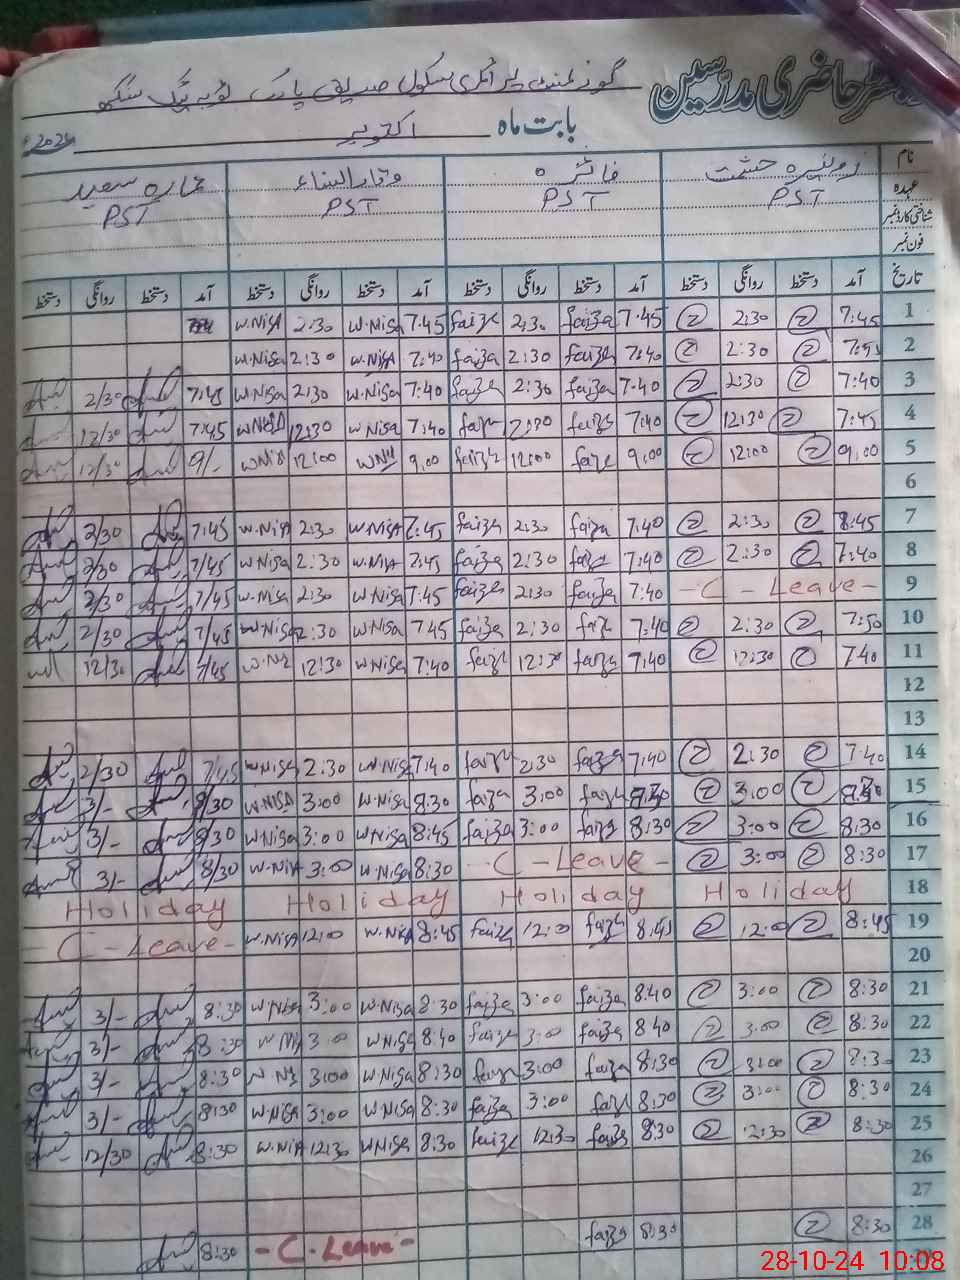 رجسٹر حاضری مدرسین گورنمنٹ پرائمری سکول صدیق پارک ٹوبہ ٹیک سنگھ
بابت ماہ اکتوبر 2024ء
نام روبینہ حشمت فائزہ وقار النساء عمارہ سعید
عہدہ PST PST PST PST
شناختی کارڈ نمبر
فون نمبر
تاریخ آمد دستخط روانگی دستخط آمد دستخط روانگی دستخط آمد دستخط روانگی دستخط آمد دستخط روانگی دستخط
1 7:45 2:30 7:45 faiza 2:30 faiza 7:45 W.Nisa 2:30 W.Nisa
2 2:30 7:40 faiza 2:30 faiza 7:40 W.Nisa 2:30 W.Nisa
3 7:40 2:30 7:40 faiza 2:30 faiza 7:40 W.Nisa 2:30 W.Nisa 7:45 2/30
4 7:45 12:30 7:40 faiza faiza 7:40 W.Nisa 12:30 W.Nisa 7:45 12/30
5 9:00 12:00 9:00 faiza 12:00 faiza 9:00 W.Nisa 12:00 W.Nisa 9/- 12/30
6
7 8:45 2:30 7:40 faiza 2:30 faiza 7:45 W.Nisa 2:30 W.Nisa 7:45 2/30
8 7:40 2:30 7:40 faiza 2:30 faiza 7:45 W.Nisa 2:30 W.Nisa 7/45 2/30
9 - C - Leave - 7:40 faiza 2:30 faiza 7:45 W.Nisa 2:30 W.Nisa 7/45 2/30
10 7:50 2:30 7:40 faiza 2:30 faiza 7:45 W.Nisa 2:30 W.Nisa 7/45 2/30
11 7:40 12:30 7:40 faiza 12:30 faiza 7:40 W.Nisa 12:30 W.Nisa 7/45 12/30
12
13
14 7:40 2:30 7:40 faiza 2:30 faiza 7:40 W.Nisa 2:30 W.Nisa 7/45 2/30
15 3:00 faiza 3:00 faiza 8:30 W.Nisa 3:00 W.Nisa 8/30 3/-
16 8:30 3:00 8:30 faiza 3:00 faiza 8:45 W.Nisa 3:00 W.Nisa 8/30 3/-
17 8:30 3:00 - C - Leave - 8:30 W.Nisa 3:00 W.Nisa 8/30 3/-
18 Holiday Holiday Holiday Holiday
19 8:45 12:00 8:45 faiza 12:00 faiza 8:45 W.Nisa 12:00 W.Nisa - C - Leave -
20
21 8:30 3:00 8:40 faiza 3:00 faiza 8:30 W.Nisa 3:00 W.Nisa 8:30 3/-
22 8:30 3:00 8:40 faiza 3:00 faiza 8:40 W.Nisa 3:00 8:30 3/-
23 8:30 3:00 8:30 faiza 3:00 faiza 8:30 W.Nisa 3:00 8:30 3/-
24 8:30 3:00 8:30 faiza 3:00 faiza 8:30 W.Nisa 3:00 W.Nisa 8:30 3/-
25 8:30 12:30 8:30 faiza 12:30 faiza 8:30 W.Nisa 12:30 W.Nisa 8:30 12/30
26
27
28 8:30 8:30 faiza - C - Leave - 8:30
28-10-24 10:08